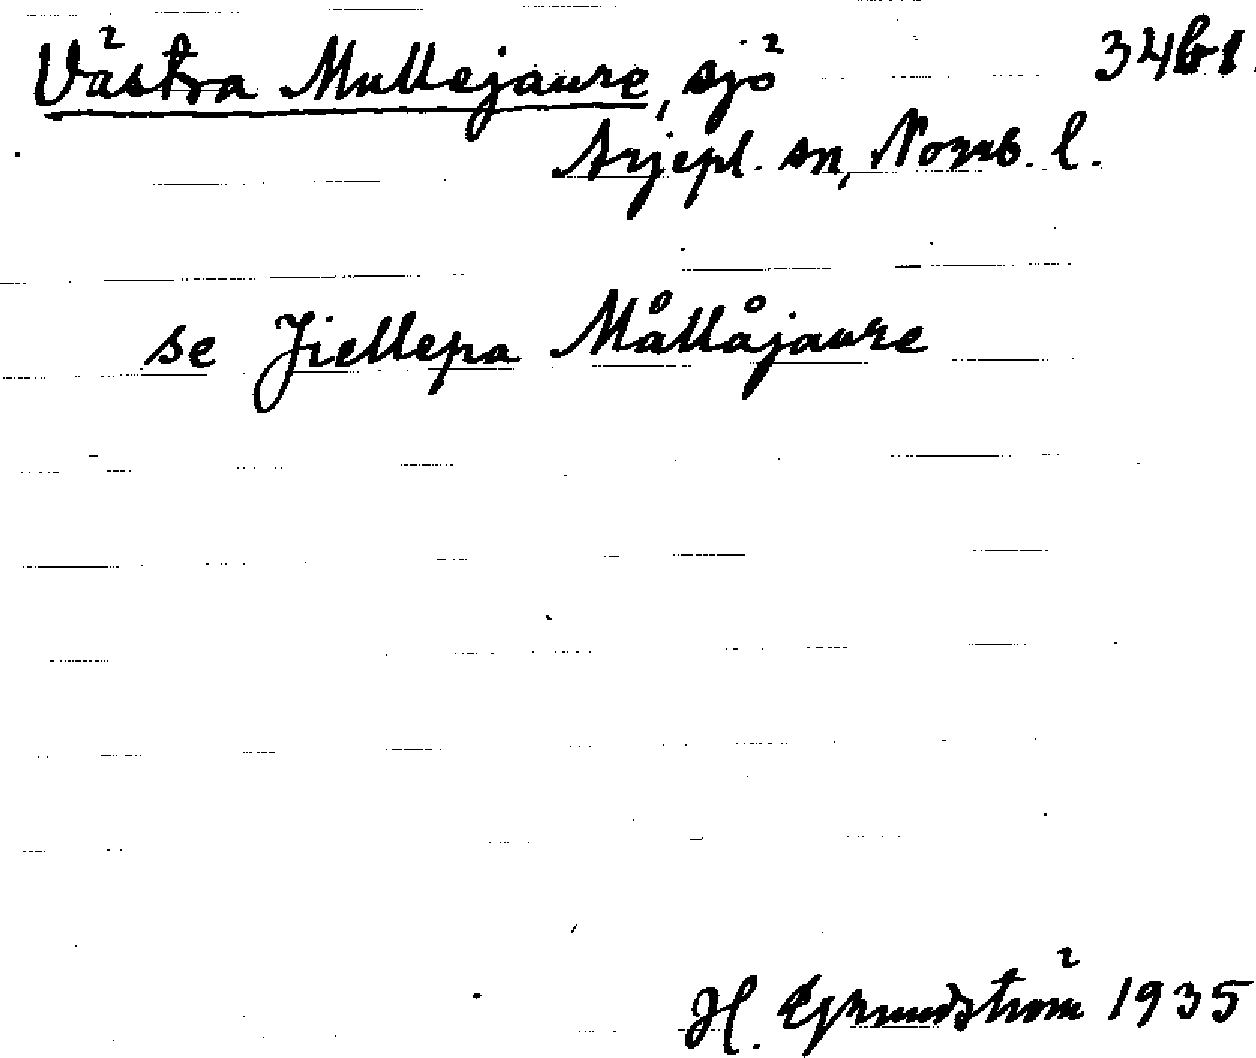 Västra Mullejaure, sjö 34b1.
Arjepl. sn, Norrb. l.
se Jiellepa Mållåjaure
H. Egmundström 1935